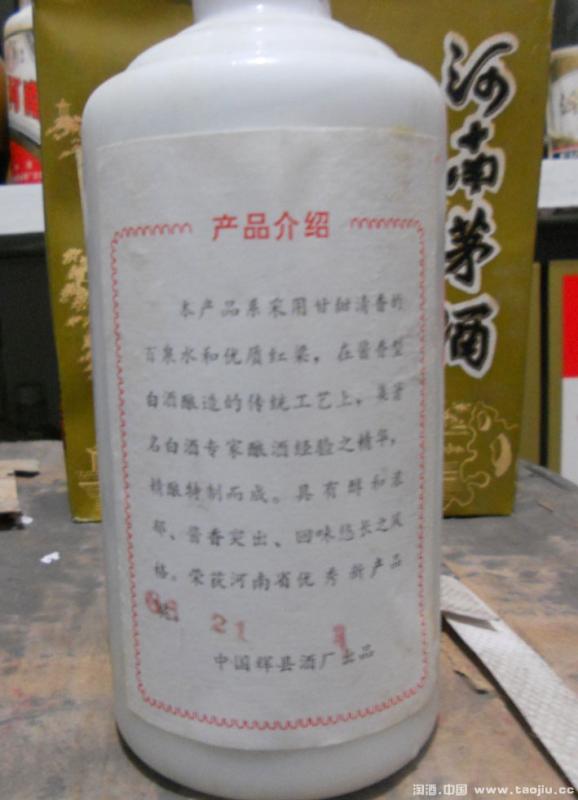 河南茅酒
河南
产品介绍
本产品系采用甘甜清香的
百泉水和优质红梁，在酱香型
白酒酿造的传统工艺上，集著
名白酒专家酿酒经验之精华，
精酿特制而成。具有醇和浓
郁、酱香突出、回味悠长之风
格。荣获河南省优秀新产品
21
中国辉县酒厂出品
淘酒.中国 www.taojiu.cc